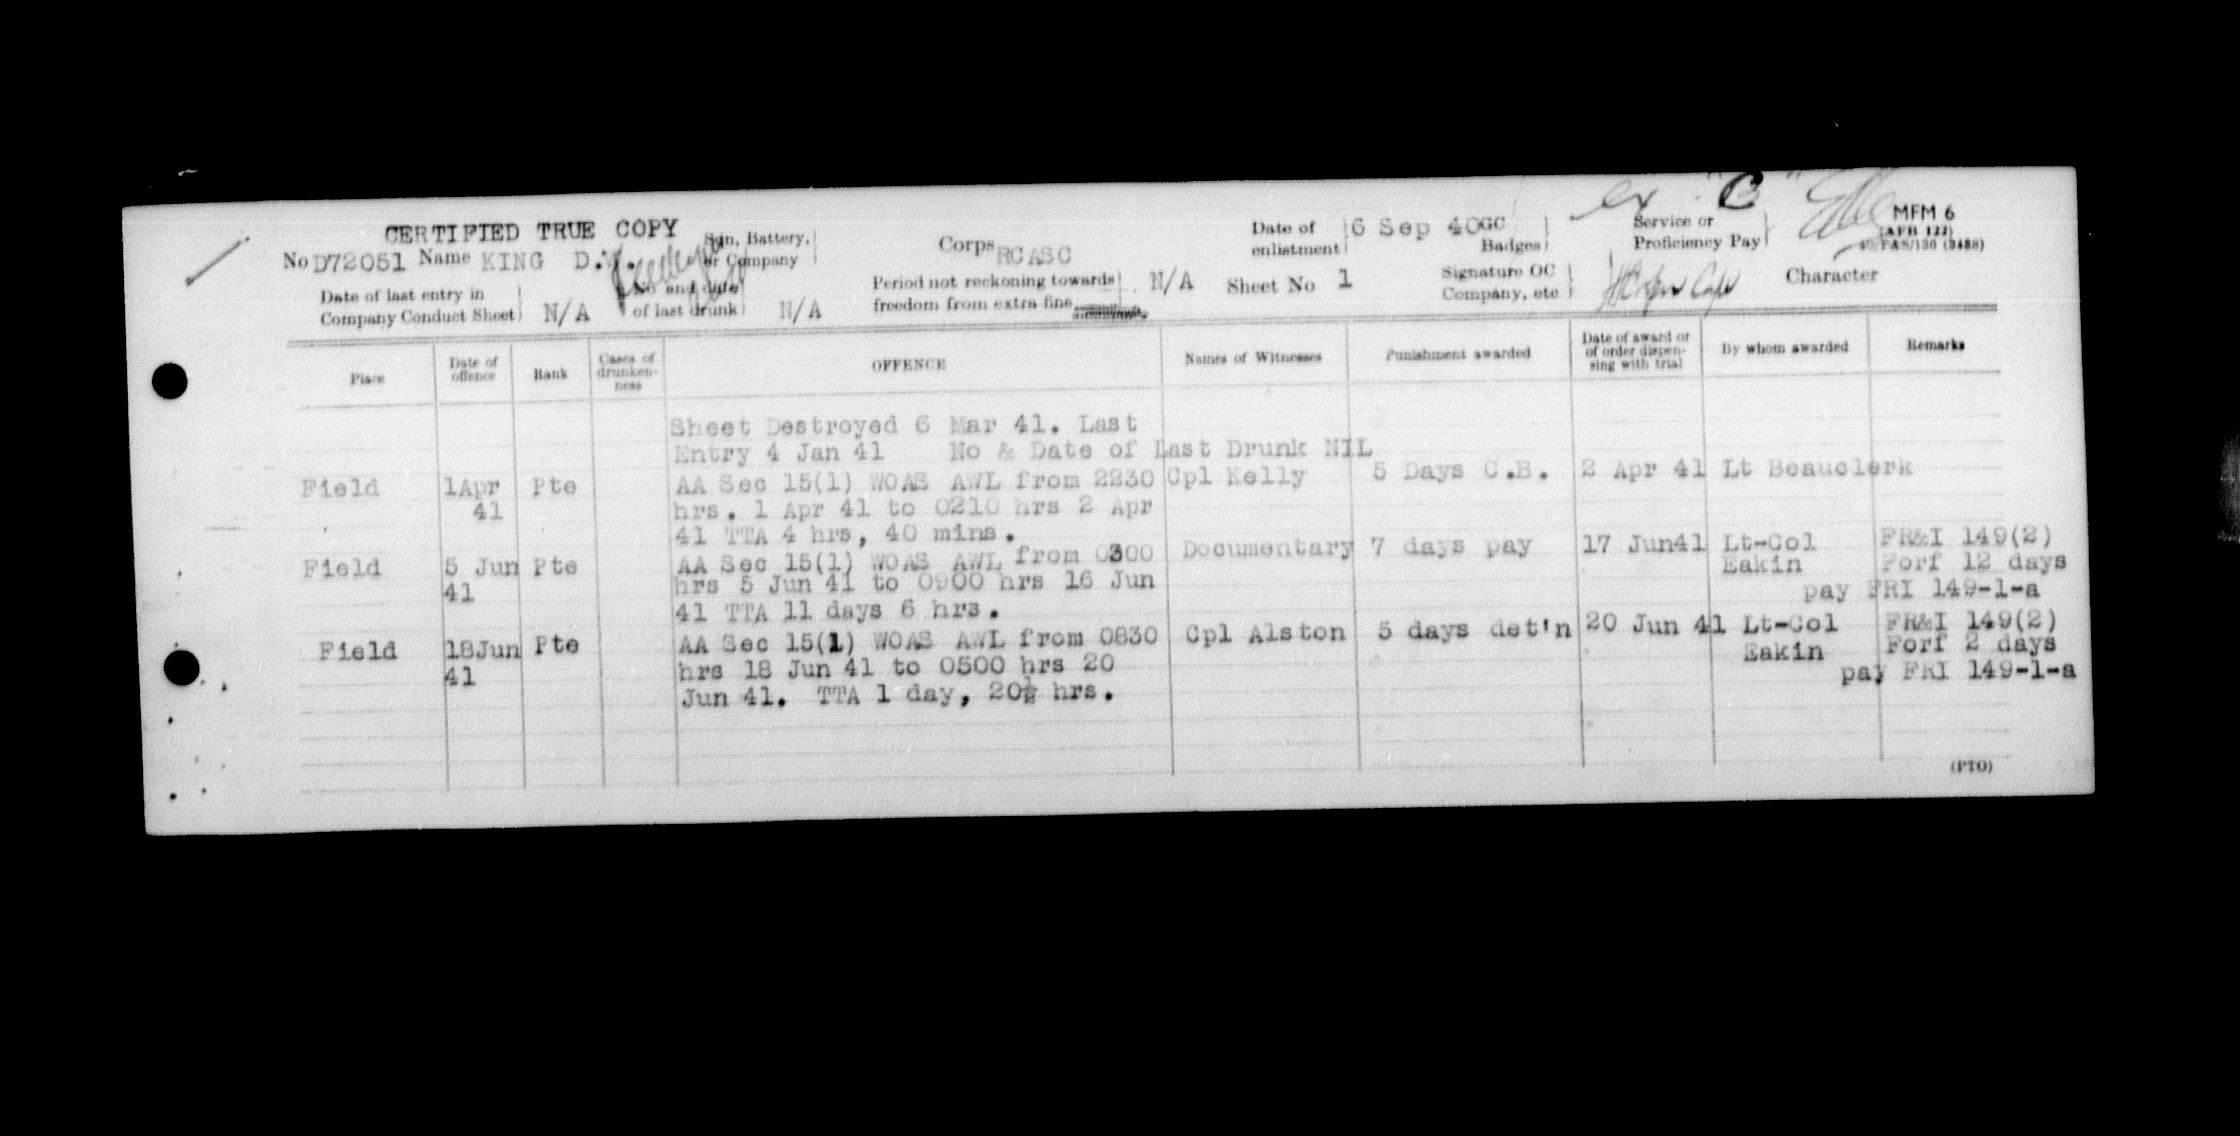 ex "C"
CERTIFIED TRUE COPY
MFM 6
(AFB 122)
No D72051 Name KING D.
Sqn, Battery, or Company
Corps RCASC
Date of enlistment 6 Sep 40
GC Badges
Service or Proficiency Pay
Date of last entry in Company Conduct Sheet N/A
No and date of last drunk N/A
Period not reckoning towards freedom from extra fine N/A
Sheet No 1
Signature OC Company, etc
Character
Place
Date of offence
Rank
Cases of drunken-ness
OFFENCE
Names of Witnesses
Punishment awarded
Date of award or of order dispen-sing with trial
By whom awarded
Remarks
Sheet Destroyed 6 Mar 41. Last
Entry 4 Jan 41 No & Date of Last Drunk NIL
Field 1Apr Pte AA Sec 15(1) WOAS AWL from 2230 Cpl Kelly 5 Days C.B. 2 Apr 41 Lt Beauclerk
41 hrs. 1 Apr 41 to 0210 hrs 2 Apr
41 TTA 4 hrs, 40 mins.
Field 5 Jun Pte AA Sec 15(1) WOAS AWL from 0300 Documentary 7 days pay 17 Jun41 Lt-Col FR&I 149(2)
41 hrs 5 Jun 41 to 0900 hrs 16 Jun Eakin Forf 12 days
41 TTA 11 days 6 hrs. pay FRI 149-1-a
Field 18Jun Pte AA Sec 15(1) WOAS AWL from 0830 Cpl Alston 5 days det'n 20 Jun 41 Lt-Col FR&I 149(2)
41 hrs 18 Jun 41 to 0500 hrs 20 Eakin Forf 2 days
Jun 41. TTA 1 day, 20½ hrs. pay FRI 149-1-a
(PTO)